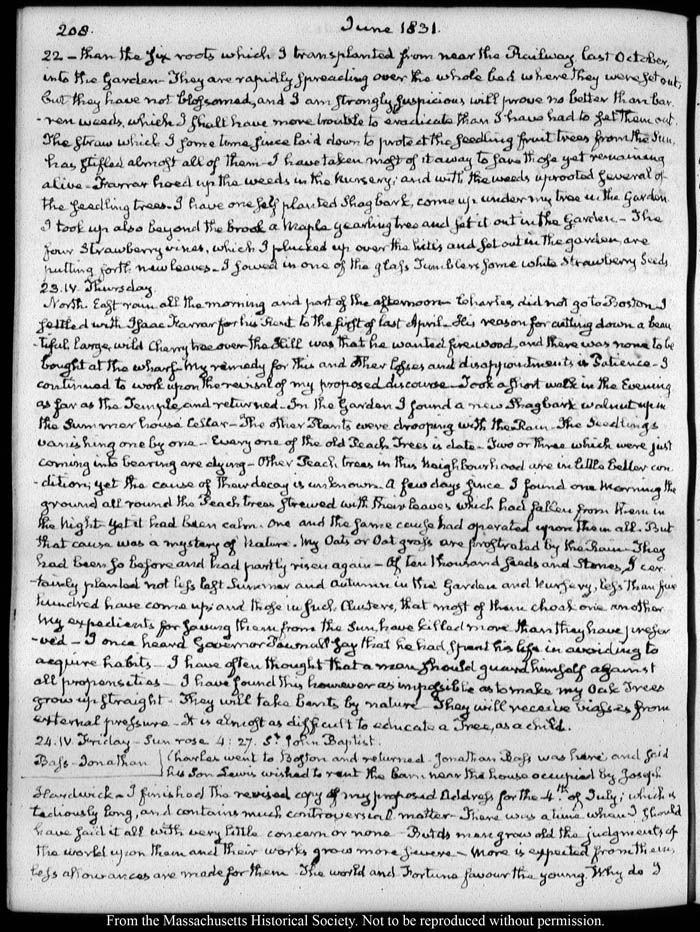 208. June 1831.
22 — than the six roots which I transplanted from near the Railway last October,
into the Garden— They are rapidly spreading over the whole bed where they were set out,
but they have not blossomed, and I am strongly suspicious will prove no better than bar-
-ren weeds, which I shall have more trouble to eradicate than I have had to set them out.
The straw which I some time since laid down to protect the seedling fruit trees from the Sun,
has stifled almost all of them— I have taken most of it away to save those yet remaining
alive— Farrar hoed up the weeds in the Nursery; and with the weeds uprooted several of
the seedling trees— I have one self planted Shagbark, come up under my tree in the Garden
I took up also beyond the brook a Maple yearling tree and set it out in the Garden— The
four Strawberry vines, which I plucked up over the hills and set out in the garden, are
putting forth new leaves— I sowed in one of the glass Tumblers some white Strawberry Seeds
23. IV. Thursday.
North East rain all the morning and part of the afternoon— Charles, did not go to Boston. I
settled with Isaac Farrar for his Rent to the first of last April— His reason for cutting down a beau
-tiful large, wild Cherry tree over the Hill was that he wanted fire wood, and there was none to be
bought at the wharf— My remedy for this and other losses and disappointments is Patience— I
continued to work upon the revisal of my proposed discourse— Took a short walk in the Evening
as far as the Temple, and returned— In the Garden I found a new Shagbark walnut up in
the Summer house Cellar— The other Plants were drooping with the Rain— The Seedlings
vanishing one by one— Every one of the old Peach Trees is dead— Two or three which were just
coming into bearing are dying— Other Peach trees in this Neighbourhood are in little better con
-dition; yet the cause of their decay is unknown. A few days since I found one Morning the
ground all round the Peach trees strewed with their leaves which had fallen from them in
the Night— yet it had been calm. One and the same cause had operated upon them all. But
that cause was a mystery of Nature. My Oats or Oat grass are prostrated by the Rain— They
had been so before and had partly risen again— Of ten thousand Seeds and Stones, I cer
-tainly planted not less last Summer and Autumn in the Garden and Nursery, less than five
hundred have come up; and those in such Clusters, that most of them choak one another
My expedients for saving them from the Sun, have killed more than they have preser
-ved— I once heard Governor Pownall say that he had spent his life in avoiding to
acquire habits— I have often thought that a man should guard himself against
all propensities— I have found this however as impossible as to make my Oak Trees
grow up straight— They will take bents by nature— They will receive biasses from
external pressure— It is almost as difficult to educate a Tree, as a child.
24. IV. Friday— Sun rose 4:27. St. John Baptist.
Bass— Jonathan Charles went to Boston and returned— Jonathan Bass was here and said
his Son Lewis wished to rent the barn near the house occupied by Joseph
Hardwick— I finished the revised copy of my proposed Address for the 4th of July; which is
tediously long, and contains much controversial matter— There was a time when I should
have said it all with very little concern or none— But as men grow old the judgments of
the world upon them and their works grow more severe— More is expected from them;
less allowances are made for them— The world and Fortune favour the young. Why do I
From the Massachusetts Historical Society. Not to be reproduced without permission.